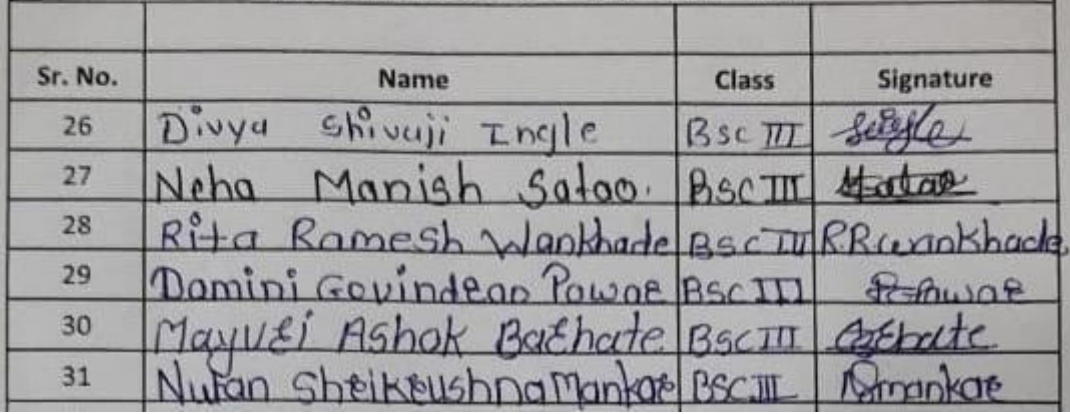 Sr. No. Name Class Signature
26 Divya Shivaji Ingle Bsc III Ingle
27 Neha Manish Satao. BSC III Satao
28 Rita Ramesh Wankhade BSC III RRwankhade
29 Damini Govindrao Pawar BSC III Pawar
30 Mayuri Ashok Barhate BSC III Barhate
31 Nutan Shrikrushna Mankar BSC III Nmankar